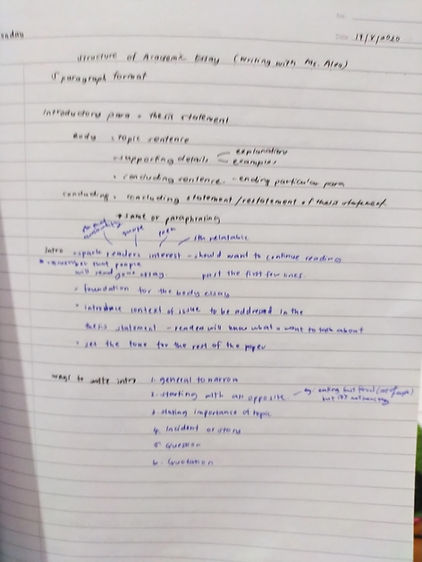 No:
Date 19/X/2020
Structure of Academic Essay (Writing with Ms. Alea)
5 paragraph format
Introductory para - thesis statement
Body - topic sentence
- supporting details explanations
examples
- concluding sentence - ending particular para
concluding - concluding statement/restatement of thesis statement
same or paraphrasing
quote
poem
relatable
Intro - spark readers interest - should want to continue reading
* remember that people
will read your essay. past the first few lines
- foundation for the body essay
- introduce context of issue to be addressed in the
thesis statement - readers will know what want to talk about
- set the tone for the rest of the paper
ways to write intro 1. general to narrow
2. starting with an opposite eg. eating fast food
3. stating importance of topic
4. Incident or story
5. Question
6. Quotation